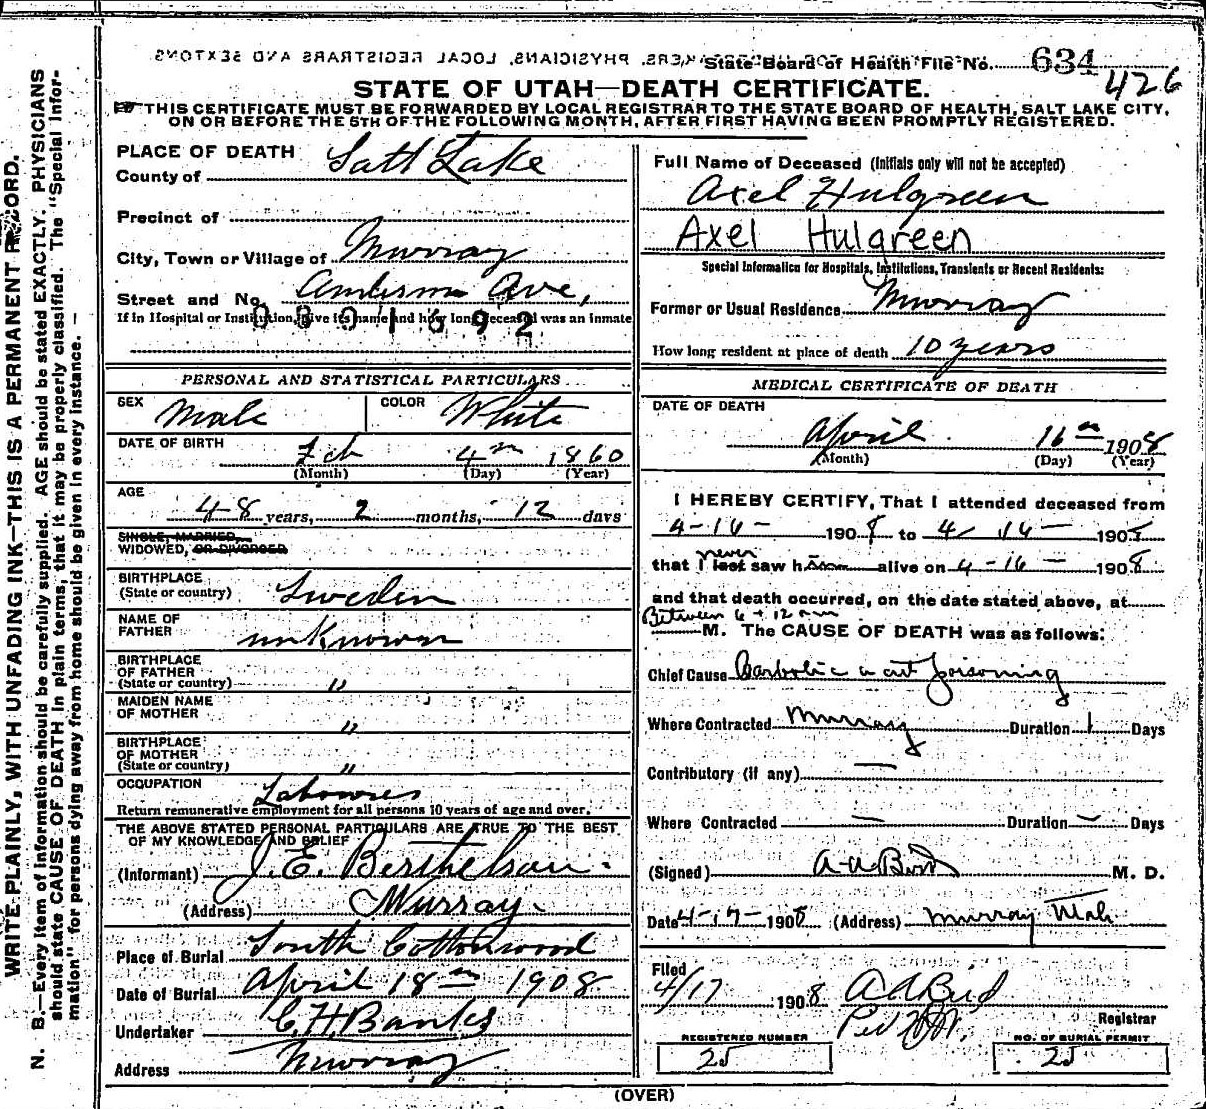 UNDERTAKERS, PHYSICIANS, LOCAL REGISTRARS AND SEXTONS
State Board of Health File No. 634
426
STATE OF UTAH—DEATH CERTIFICATE.
THIS CERTIFICATE MUST BE FORWARDED BY LOCAL REGISTRAR TO THE STATE BOARD OF HEALTH, SALT LAKE CITY,
ON OR BEFORE THE 5TH OF THE FOLLOWING MONTH, AFTER FIRST HAVING BEEN PROMPTLY REGISTERED.
WRITE PLAINLY, WITH UNFADING INK—THIS IS A PERMANENT RECORD.
N. B.—Every item of information should be carefully supplied. AGE should be stated EXACTLY. PHYSICIANS
should state CAUSE OF DEATH in plain terms, that it may be properly classified. The "Special Infor-
mation" for persons dying away from home should be given in every instance.
PLACE OF DEATH
County of Salt Lake
Precinct of
City, Town or Village of Murray
Street and No. Ave,
If in Hospital or Institution, give its name and how long deceased was an inmate
0801692
PERSONAL AND STATISTICAL PARTICULARS
SEX Male COLOR White
DATE OF BIRTH
Feb 4th 1860
(Month) (Day) (Year)
AGE
48 years, 2 months, 12 days
SINGLE, MARRIED,
WIDOWED, OR DIVORCED
BIRTHPLACE
(State or country) Sweden
NAME OF
FATHER unKnown
BIRTHPLACE
OF FATHER
(State or country) "
MAIDEN NAME
OF MOTHER "
BIRTHPLACE
OF MOTHER
(State or country) "
OCCUPATION Labourer
Return remunerative employment for all persons 10 years of age and over.
THE ABOVE STATED PERSONAL PARTICULARS ARE TRUE TO THE BEST
OF MY KNOWLEDGE AND BELIEF
(Informant) J. E. Berthelson.
(Address) Murray.
Place of Burial South Cottonwood
Date of Burial April 18th 1908
Undertaker C. H Banks
Address Murray
Full Name of Deceased (Initials only will not be accepted)
Axel Hulgreen
Axel Hulgreen
Special Information for Hospitals, Institutions, Transients or Recent Residents:
Former or Usual Residence Murray
How long resident at place of death 10 years
MEDICAL CERTIFICATE OF DEATH
DATE OF DEATH
April 16th 1908
(Month) (Day) (Year)
I HEREBY CERTIFY, That I attended deceased from
4-16- 1908 to 4/16- 1908
that I never last saw him alive on 4-16- 1908
and that death occurred, on the date stated above, at
Between 6 + 12 am
M. The CAUSE OF DEATH was as follows:
Chief Cause Carbolic acid poisoning
Where Contracted Murray Duration 1 Days
Contributory (if any) —
Where Contracted — Duration — Days
(Signed) A A Bird M. D.
Date 4-17-1908 (Address) Murray Utah
Filed
4/17 1908 A A Bird
Registrar
REGISTERED NUMBER
25
NO. OF BURIAL PERMIT
25
(OVER)